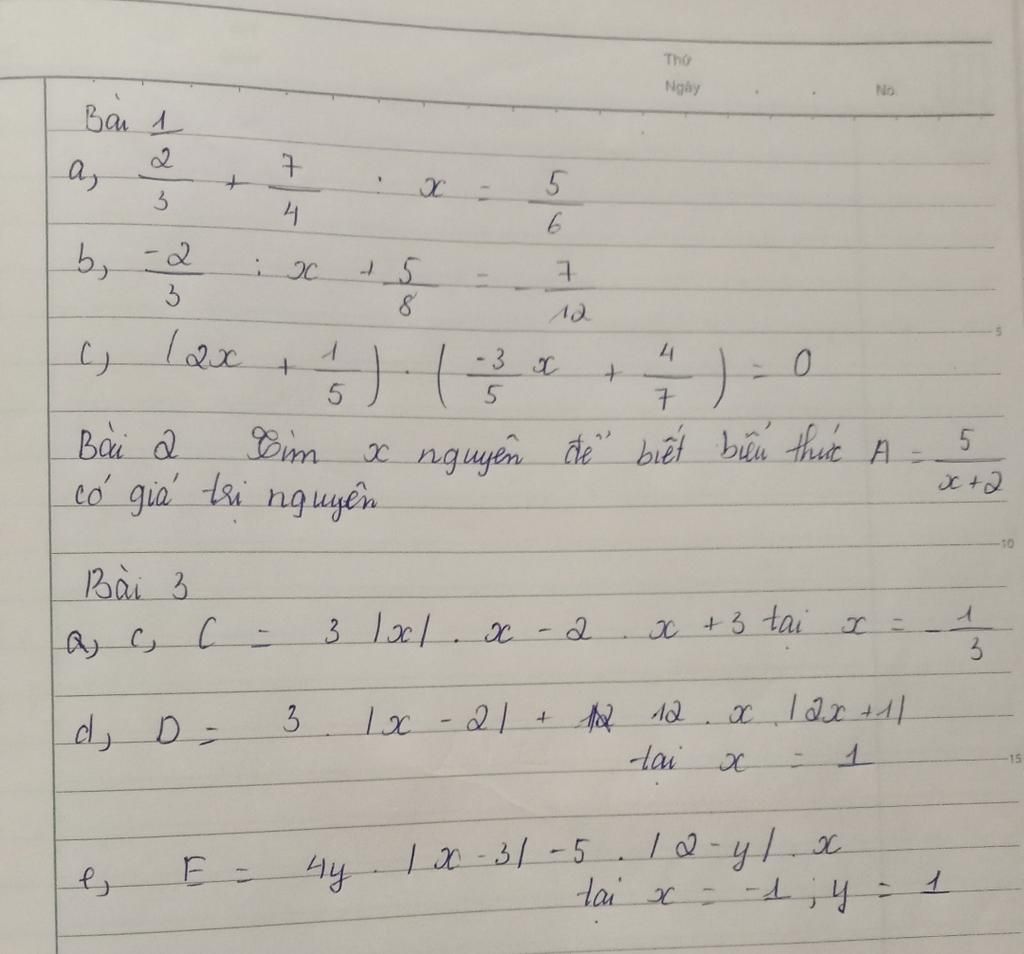 Thứ
Ngày . . No.
Bài 1
a, 2/3 + 7/4 : x = 5/6
b, -2/3 : x + 5/8 = -7/12
c, (2x + 1/5) . (-3/5 x + 4/7) = 0
5
Bài 2 Tìm x nguyên để biết biểu thức A = 5/x+2
có giá trị nguyên
10
Bài 3
a, c, C = 3 |x| . x - 2 . x + 3 tại x = -1/3
d, D = 3 . |x - 2| + 12 . x . |2x + 1|
tại x = 1
15
e, E = 4y . |x - 3| - 5 . |2 - y| . x
tại x = -1 ; y = 1